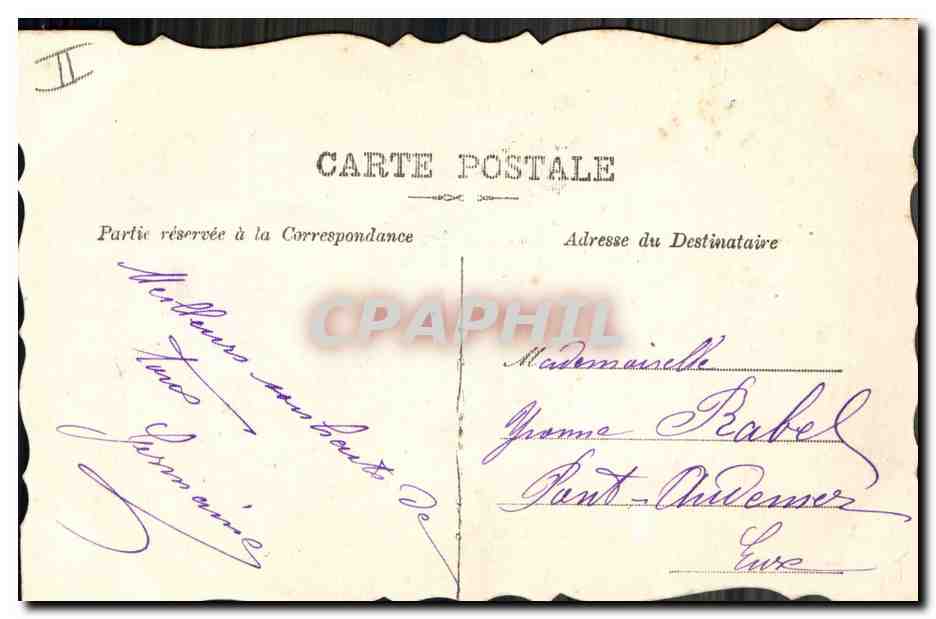 II
CARTE POSTALE
Partie réservée à la Correspondance
Adresse du Destinataire
CPAPHIL
Meilleurs souhaits de
tous
Germaine
Mademoiselle
Yvonne Rabel
Pont-Audemer
Eure